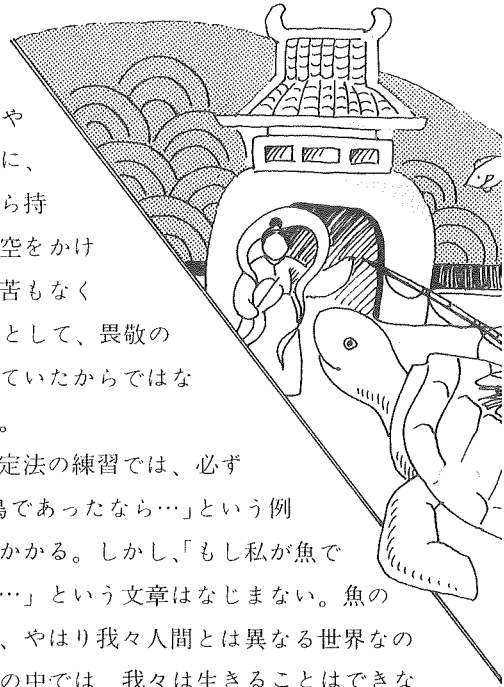 や
に、
ら持
空をかけ
苦もなく
として、畏敬の
ていたからではな
。
定法の練習では、必ず
鳥であったなら…」という例
かかる。しかし、「もし私が魚で
…」という文章はなじまない。魚の
、やはり我々人間とは異なる世界なの
の中では、我々は生きることはできな